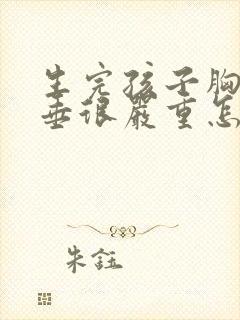 生完孩子胸
垂很严重怎
朱钰